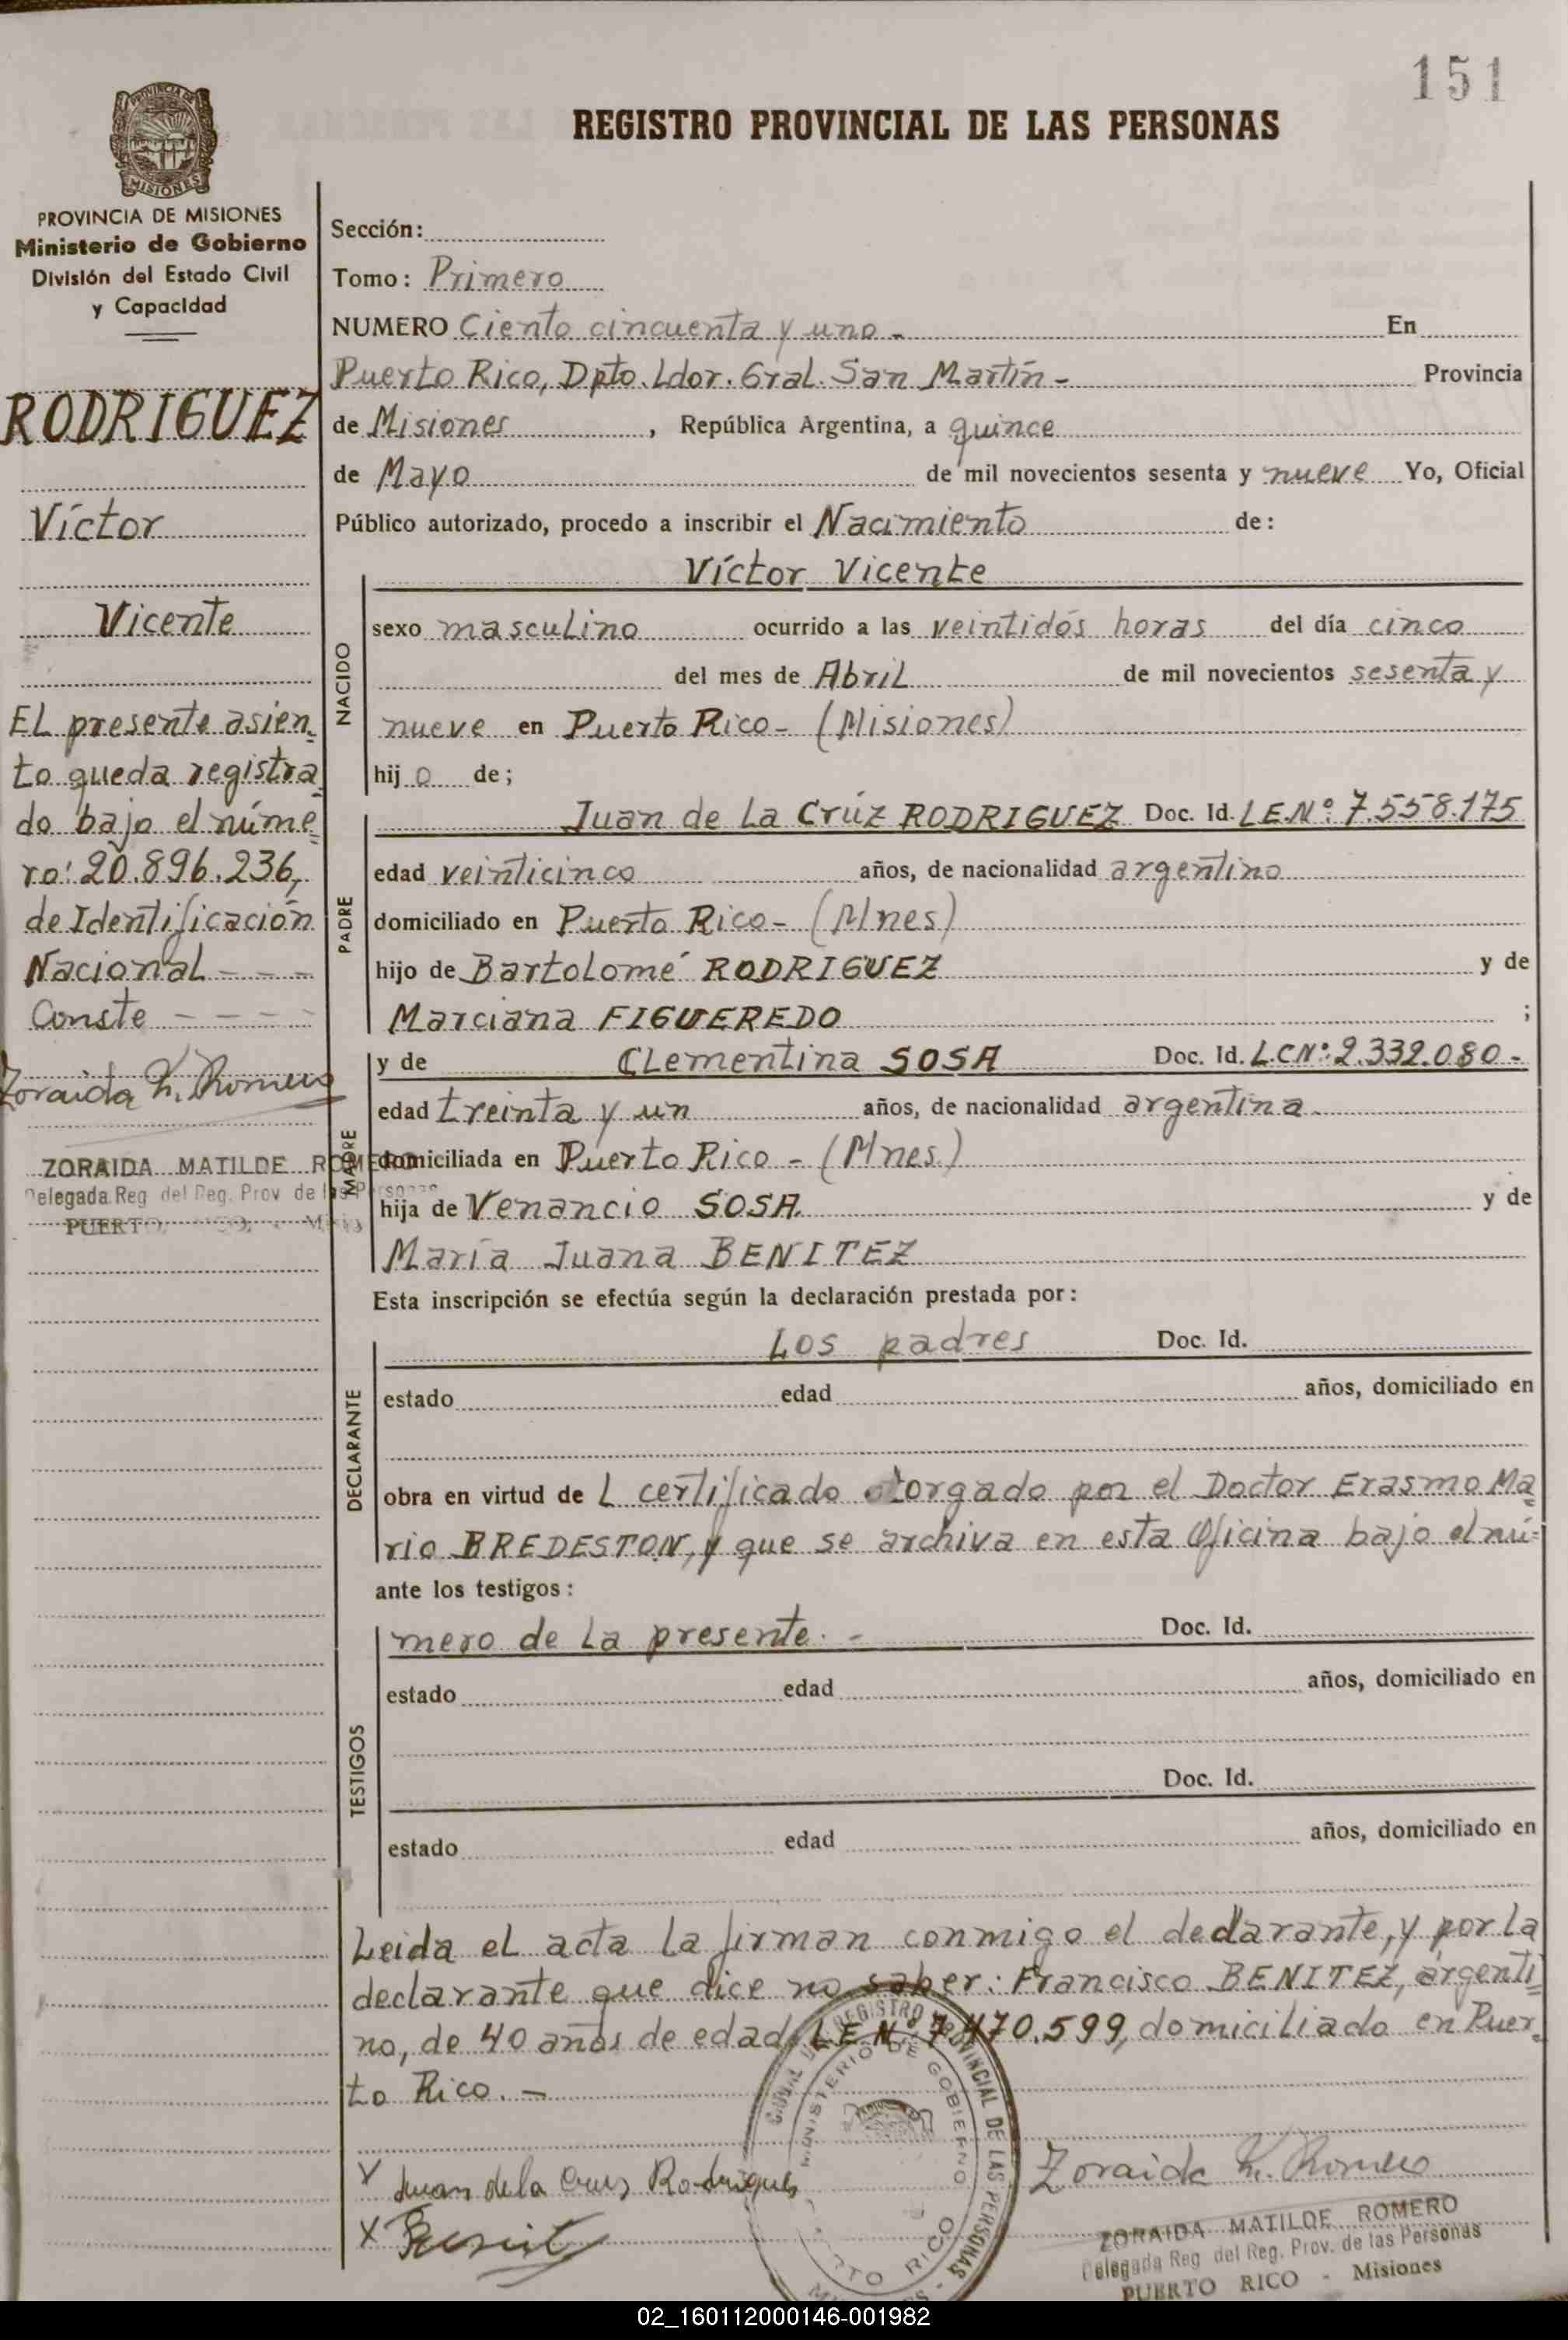 151
REGISTRO PROVINCIAL DE LAS PERSONAS
PROVINCIA DE
MISIONES
PROVINCIA DE MISIONES
Ministerio de Gobierno
División del Estado Civil
y Capacidad
RODRIGUEZ
Víctor
Vicente
EL presente asien-
to queda registra-
do bajo el núme-
ro: 20.896.236,
de Identificación
Nacional - - -
Conste - - - -
Zoraida M. Romero
ZORAIDA MATILDE ROMERO
Delegada Reg del Reg. Prov de las Personas
PUERTO
Sección:
Tomo: Primero
NUMERO Ciento cincuenta y uno - En
Puerto Rico, Dpto. Ldor. Gral. San Martín - Provincia
de Misiones, República Argentina, a quince
de Mayo de mil novecientos sesenta y nueve Yo, Oficial
Público autorizado, procedo a inscribir el Nacimiento de:
NACIDO
Víctor Vicente
sexo masculino ocurrido a las veintidós horas del día cinco
del mes de Abril de mil novecientos sesenta y
nueve en Puerto Rico - (Misiones)
hijo de;
PADRE
Juan de La Crúz RODRIGUEZ Doc. Id. L.E.Nº: 7.558.175
edad veinticinco años, de nacionalidad argentino
domiciliado en Puerto Rico - (Mnes)
hijo de Bartolomé RODRIGUEZ y de
Marciana FIGUEREDO ;
MADRE
y de CLementina SOSA Doc. Id. L.C.Nº: 2.332.080.-
edad treinta y un años, de nacionalidad argentina.
domiciliada en Puerto Rico - (Mnes.)
hija de Venancio SOSA y de
María Juana BENITEZ
Esta inscripción se efectúa según la declaración prestada por:
DECLARANTE
Los padres Doc. Id.
estado edad años, domiciliado en
obra en virtud de L certificado otorgado por el Doctor Erasmo Ma-
rio BREDESTON, y que se archiva en esta Oficina bajo el nú-
ante los testigos:
TESTIGOS
mero de La presente. - Doc. Id.
estado edad años, domiciliado en
Doc. Id.
estado edad años, domiciliado en
Leida el acta la firman conmigo el declarante, y por la
declarante que dice no saber: Francisco BENITEZ, argenti-
no, de 40 años de edad, L.E.Nº: 7.470.599, domiciliado en Puer-
to Rico. -
REGISTRO PROVINCIAL DE LAS PERSONAS
MINISTERIO DE GOBIERNO
RICO
X Juan de la Cruz Rodrigues
X Benit
Zoraida M. Romero
ZORAIDA MATILDE ROMERO
Delegada Reg del Reg. Prov. de las Personas
PUERTO RICO - Misiones
02_160112000146-001982